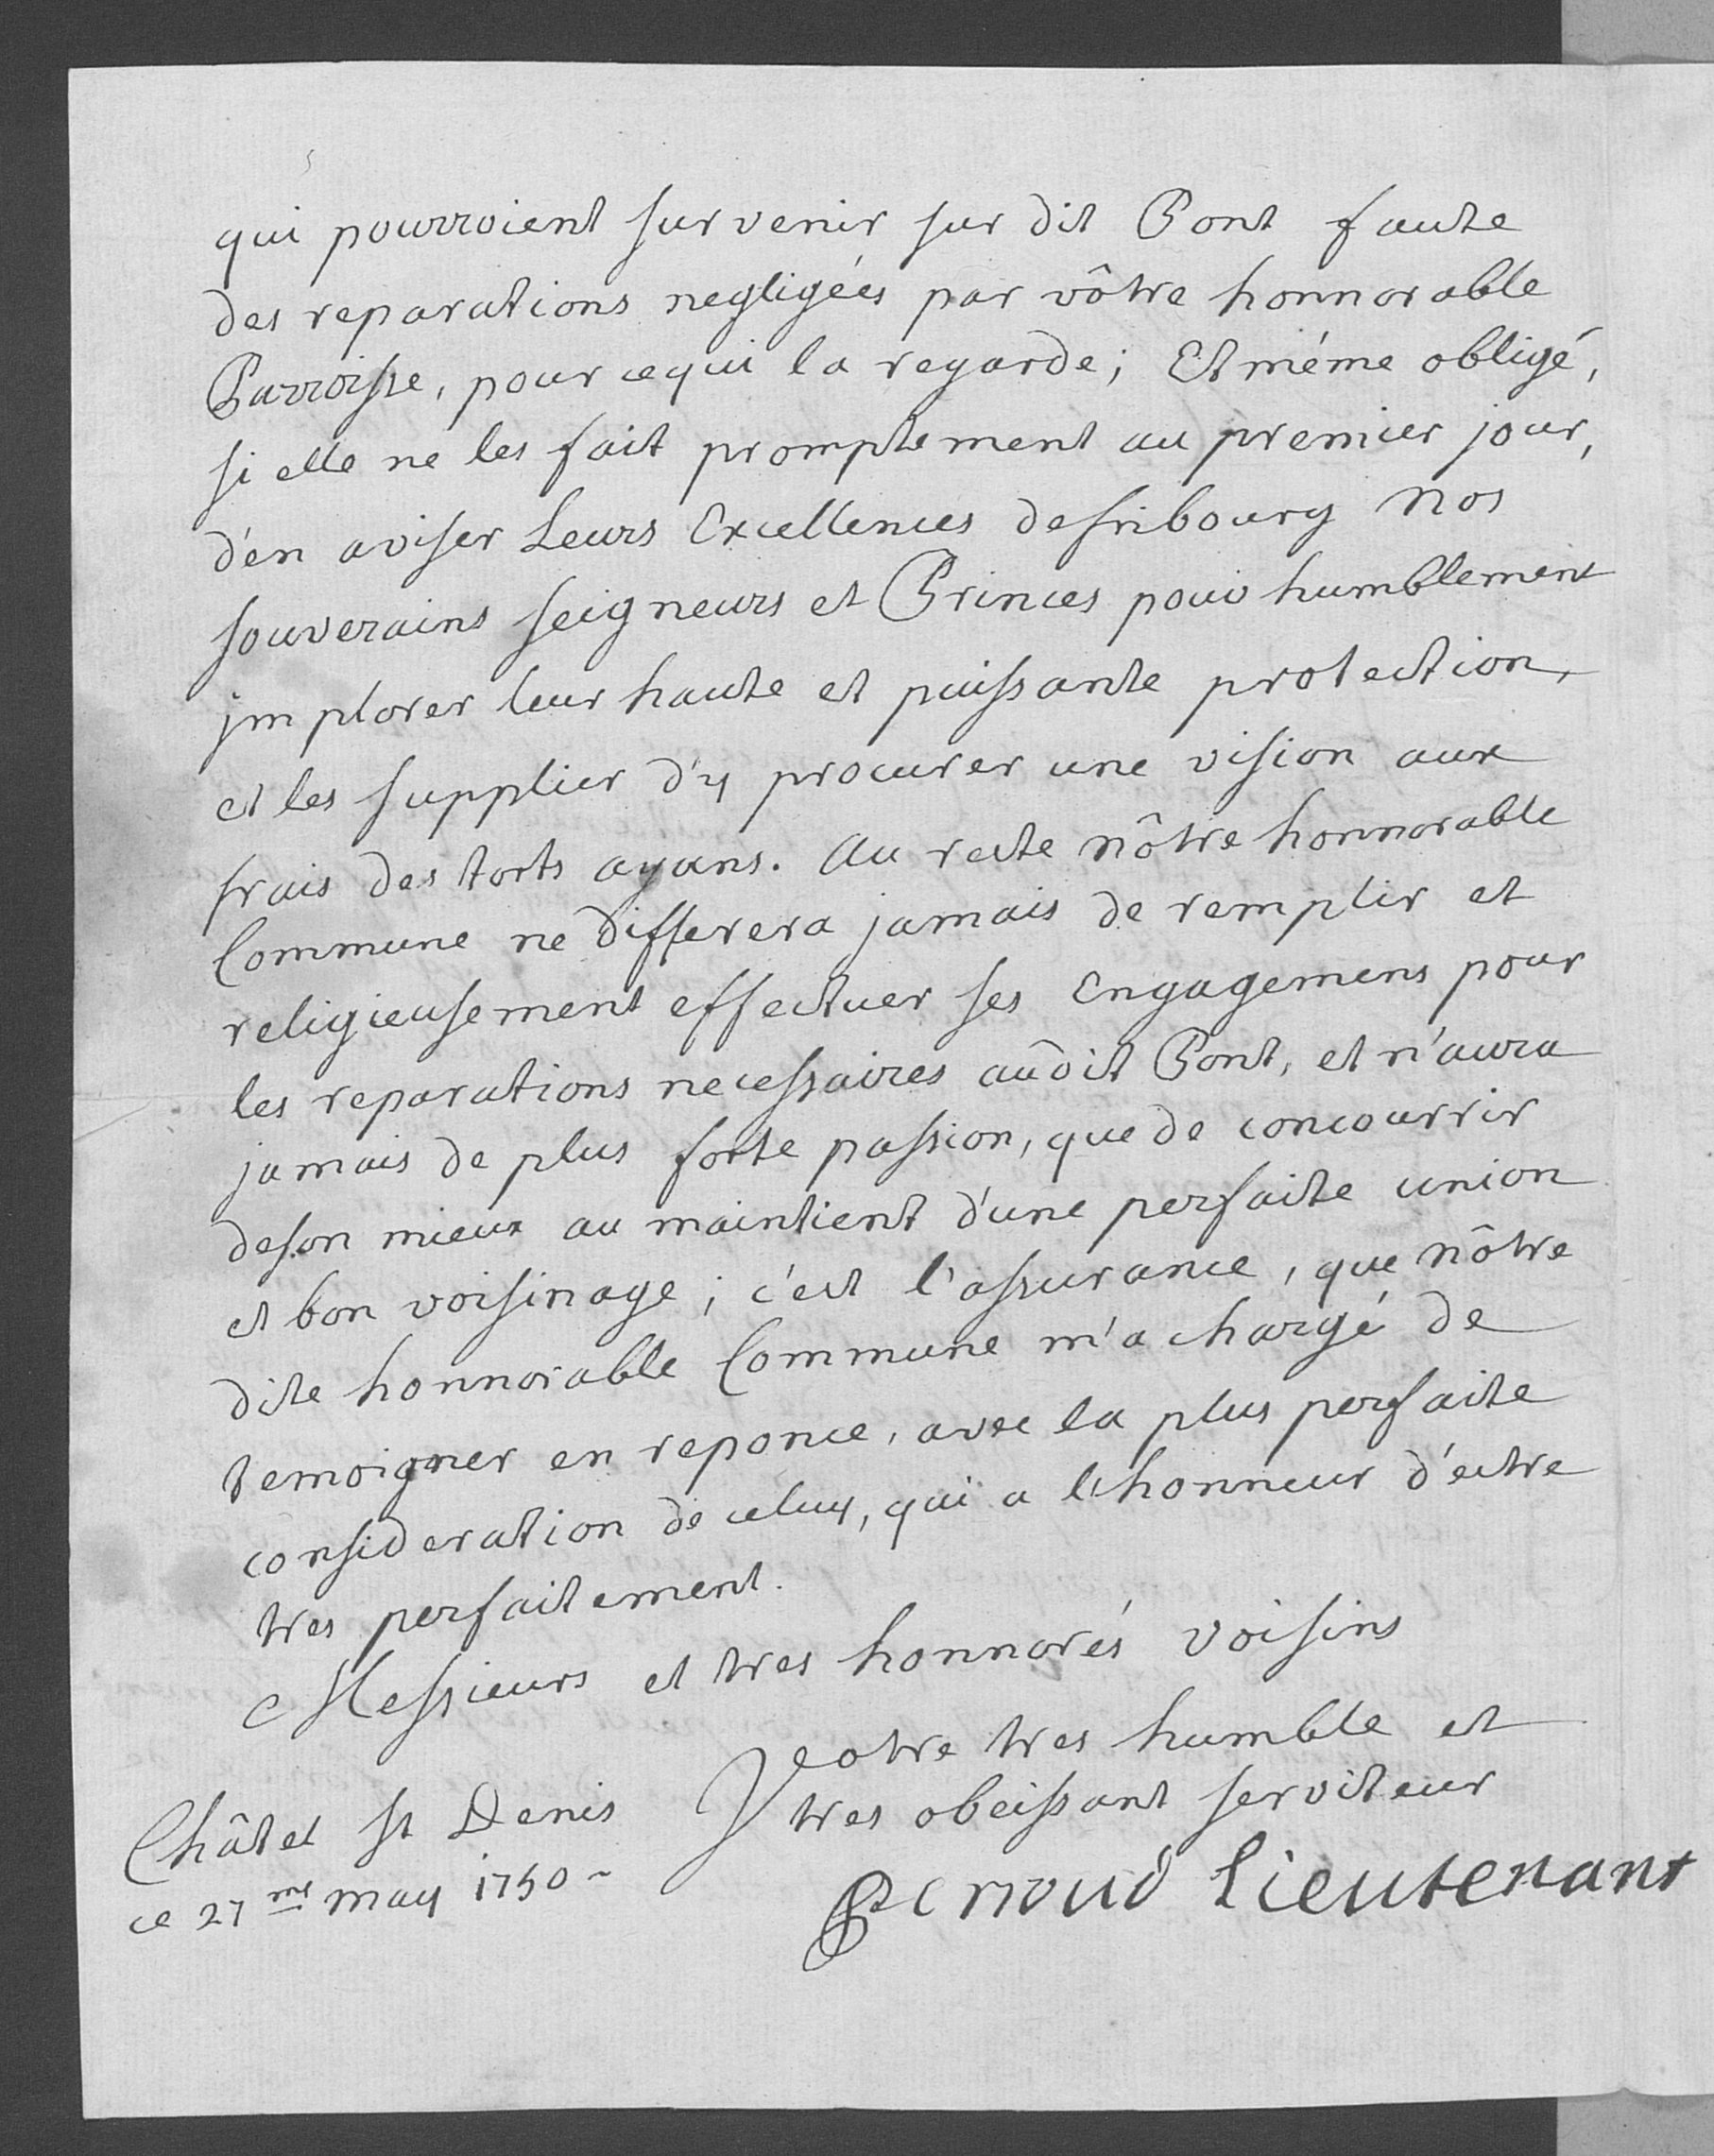 qui pourroient survenir sur dit Pont faute
des reparations negligées par vôtre honnorable
Parroisse, pour ce qui la regarde; Et méme obligé,
si elle ne les fait promptement au premier jour,
d'en aviser Leurs Excellences de fribourg Nos
souverains seigneurs et Princes pour humblement
jmplorer leur haute et puissante protection,
et les supplier d'y procurer une vision aux
frais des torts ayans. Au reste nôtre honnorable
Commune ne differera jamais de remplir et
religieusement effectuer ses Engagemens pour
les reparations necessaires audit Pont, et n'aura
jamais de plus forte passion, que de concourrir
de son mieux au maintient d'une perfaite union
et bon voisinage; c'est l'assurance, que nôtre
dite honnorable Commune m'a chargé de
temoigner en reponce, avec la plus perfaite
consideration de celuy, qui a l'honneur d'estre
tres perfaitement.
Messieurs et tres honnorés voisins
Votre tres humble et
tres obeissant serviteur
Châtel St Denis
ce 27me may 1750
Perroud Lieutenant